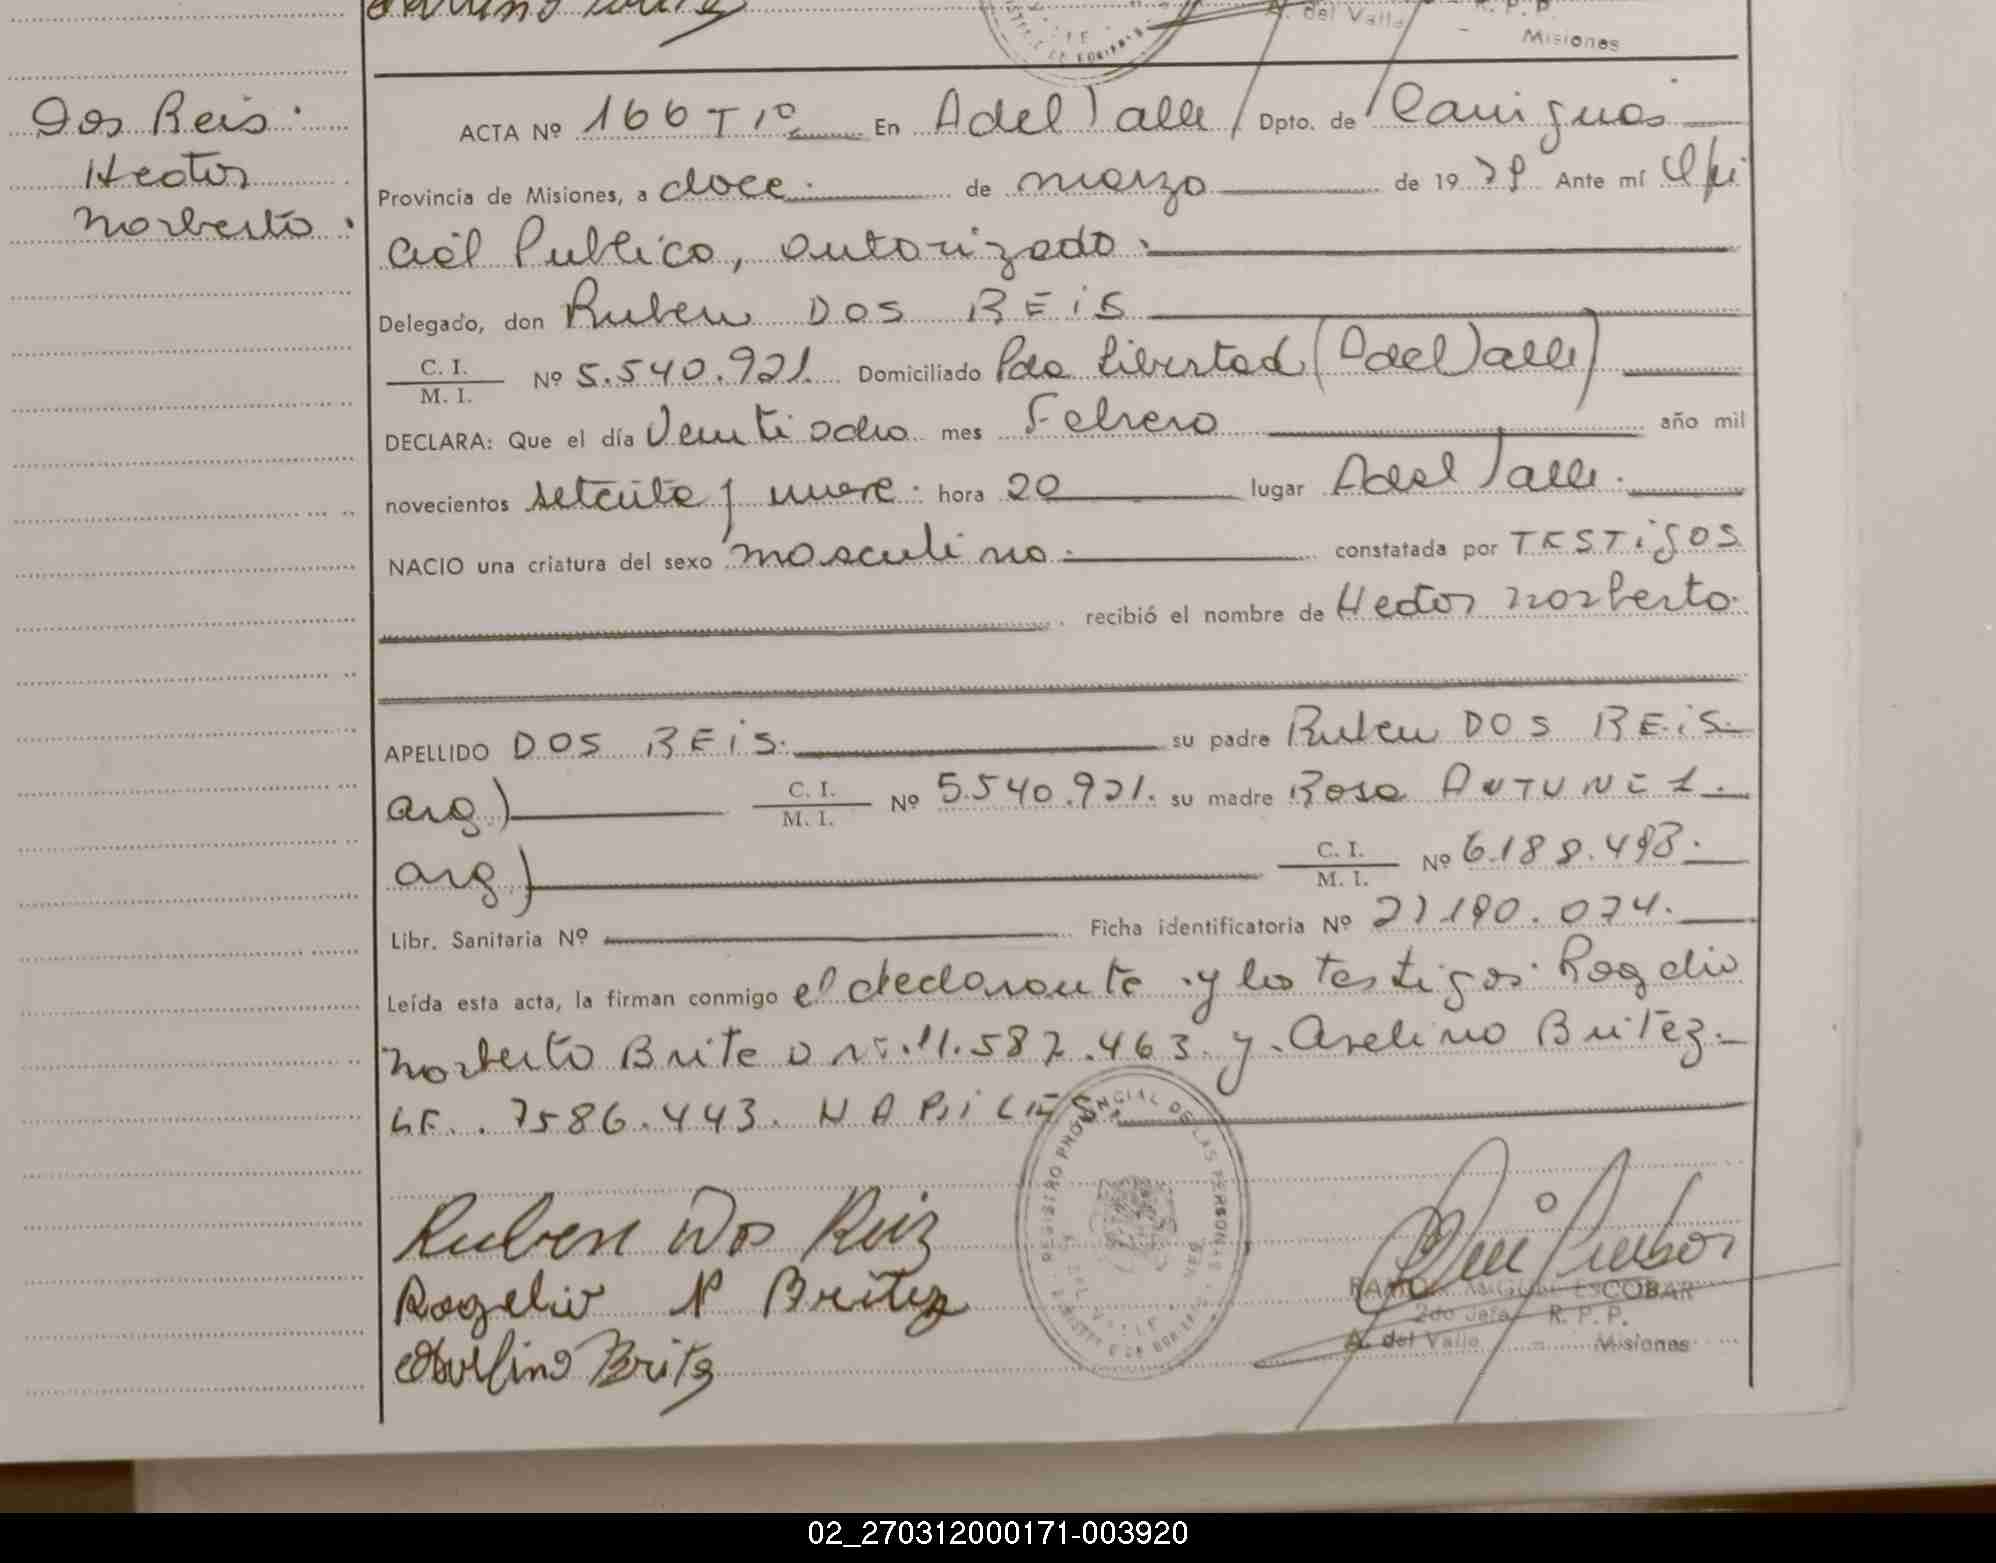 A. del Valle - R. P. P.
Misiones
Dos Reis.
Hector
Norberto.
ACTA Nº 166 T 1º En A del Valle Dpto. de Cainguás
Provincia de Misiones, a doce de marzo de 1979 Ante mí Ofi
cial Publico, autorizado.
Delegado, don Ruben DOS REIS
C. I.
M. I.
Nº 5.540.921. Domiciliado Pdo Libertad (A del Valle)
DECLARA: Que el día Ventiocho mes Febrero año mil
novecientos setenta y nueve. hora 20 lugar A del Valle.
NACIO una criatura del sexo masculino. constatada por TESTIGOS
recibió el nombre de Hector Norberto.
APELLIDO DOS REIS. su padre Ruben DOS REIS.
arg.) C. I.
M. I.
Nº 5.540.921. su madre Rosa ANTUNEZ.
arg.) C. I.
M. I.
Nº 6.188.493.
Libr. Sanitaria Nº Ficha identificatoria Nº 27.190.074.
Leída esta acta, la firman conmigo el declarante y los testigos. Rogelio
Norberto Brite D ni. 11.587.463. y Avelino Britez.
LE. 7586.443. HABILES.
REGISTRO PROVINCIAL DE LAS PERSONAS
Ruben Dos Reiz
Rogelio N Britez
Avelino Brites
RAMON MIGUEL ESCOBAR
2do Jefe R. P. P.
A. del Valle Misiones
02_270312000171-003920